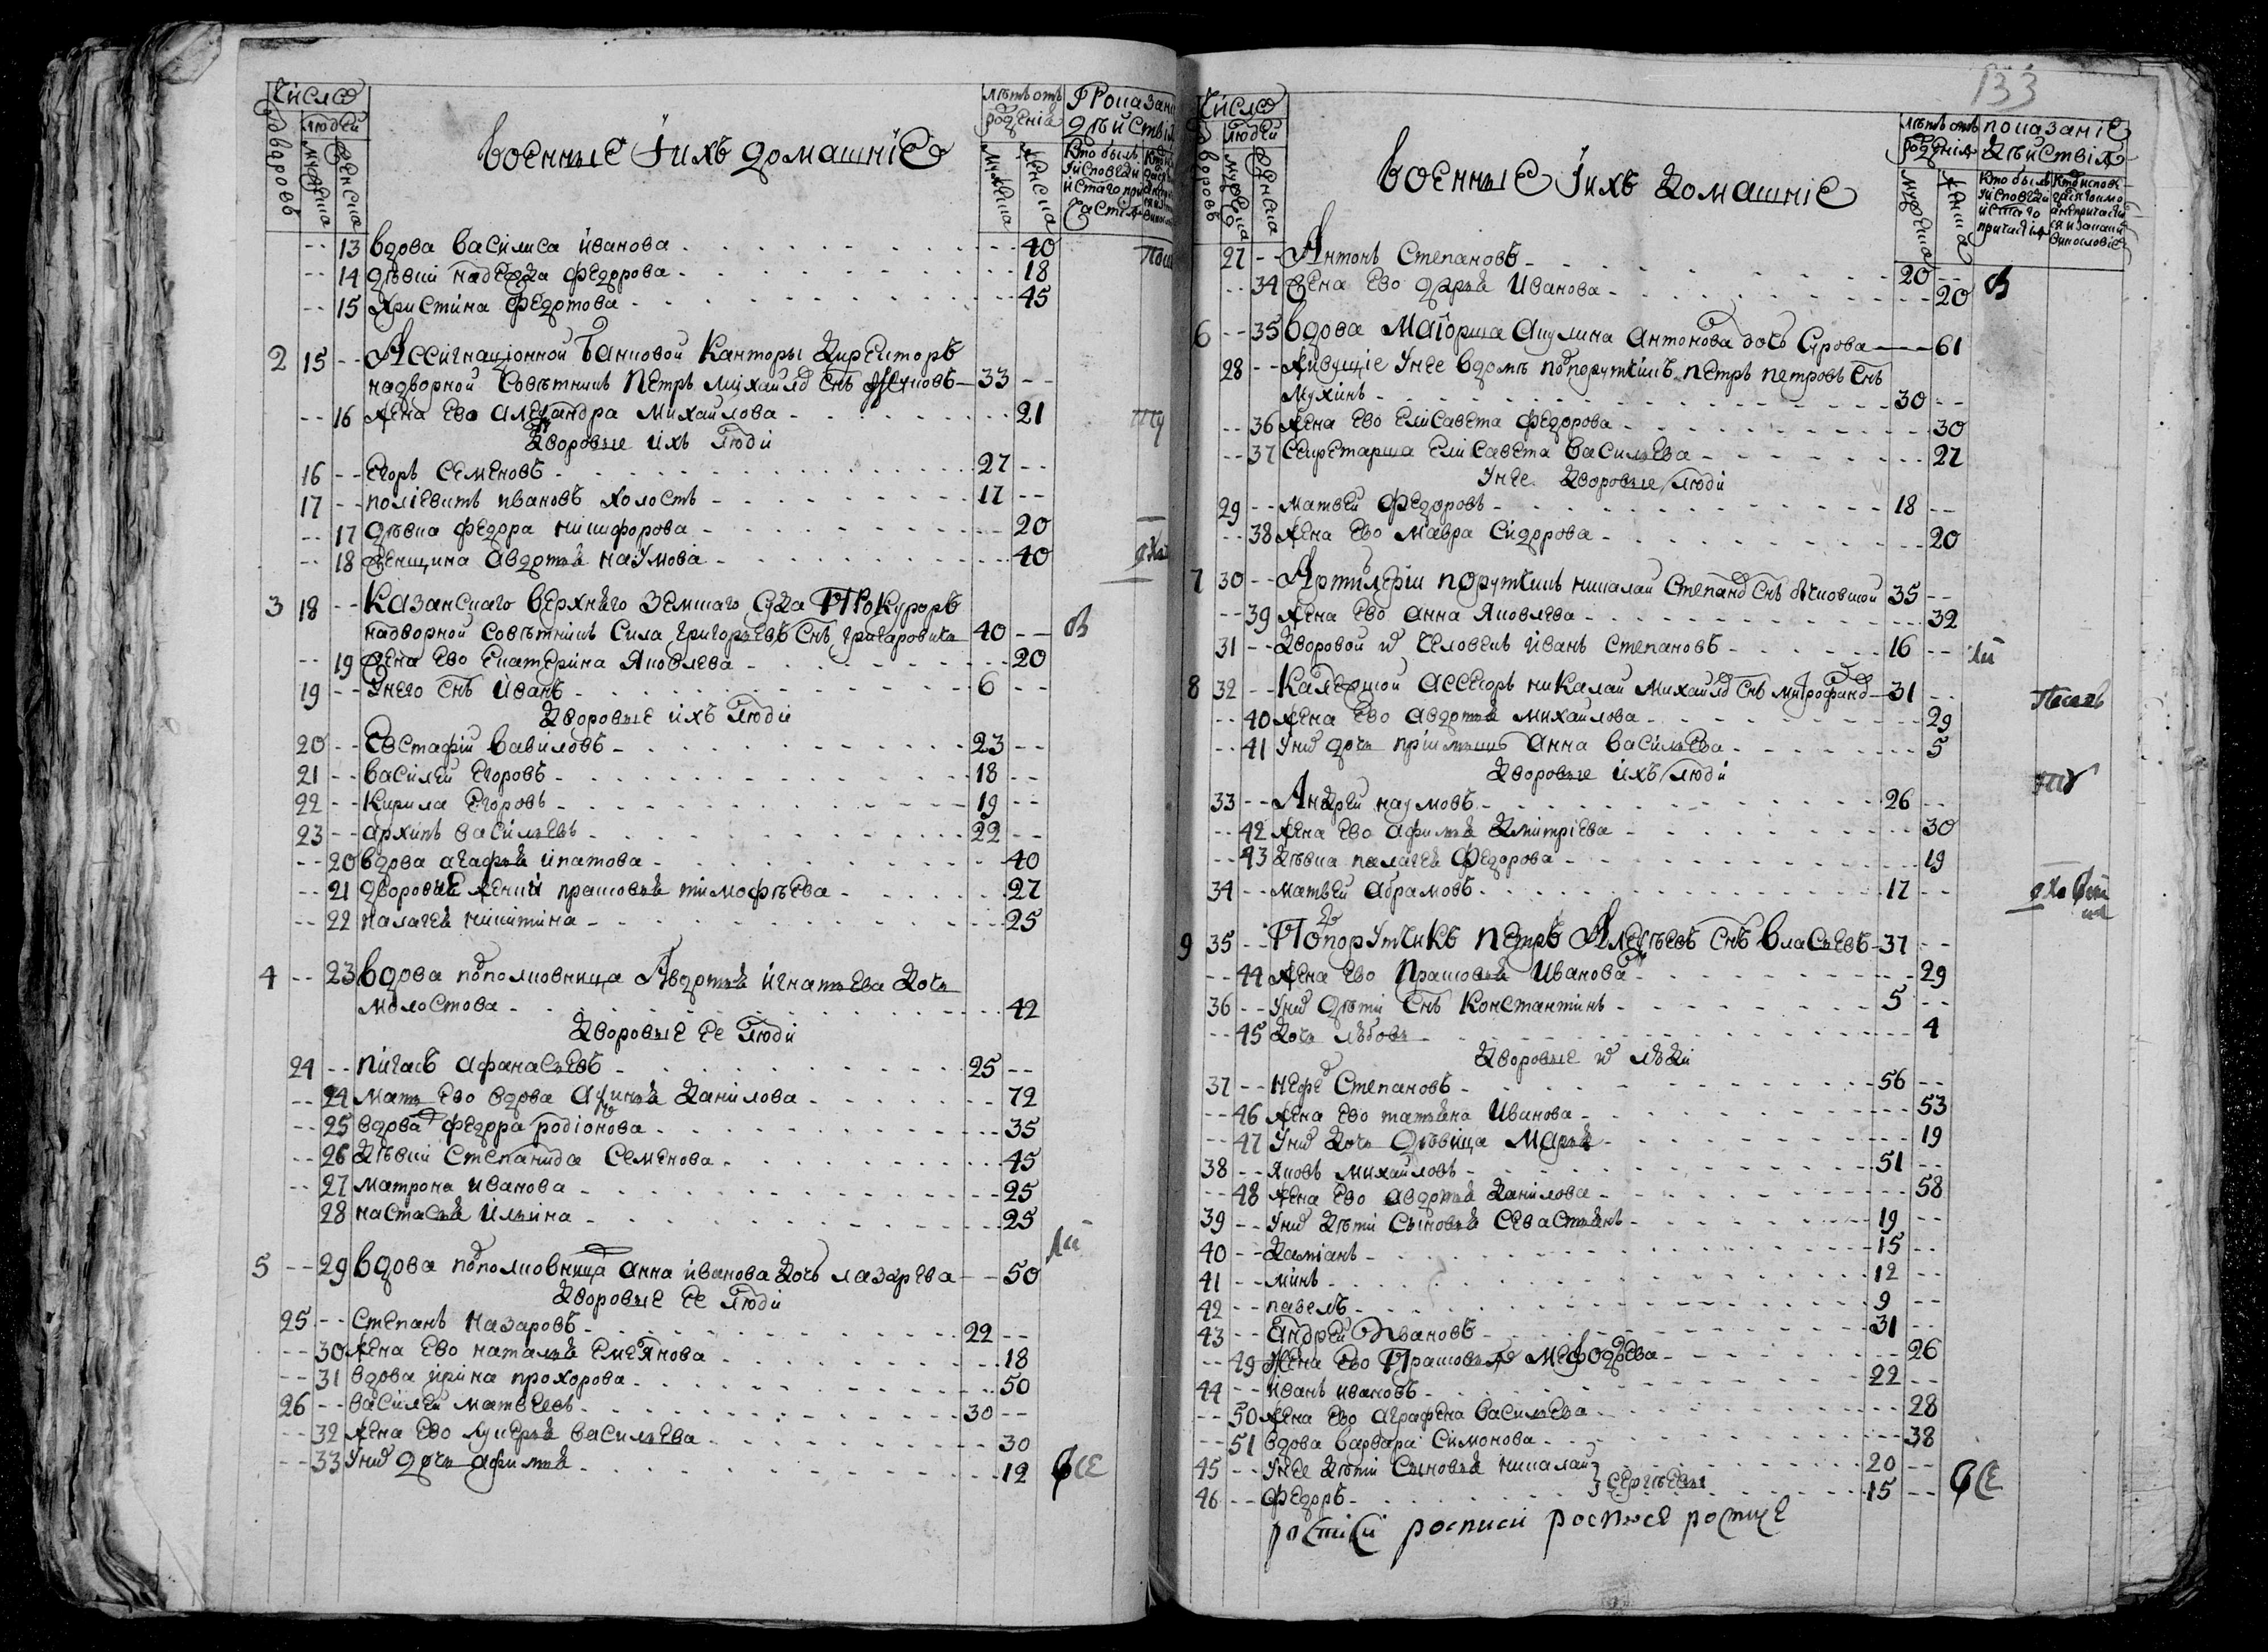 Число
дворовъ
людей
мужеска
женска
Военные и ихъ домашнїе
лѣтъ отъ рожденїя
мужеска
женска
Показанї
дѣйствїя
Кто былъ
у исповеди
и с̃таго при
частїя
-- 13 вдова Василиса Иванова 40
-- 14 дѣвки Надежда Федорова 18
-- 15 Христина Федотова 45
2 15 -- Ассигнацїонной Банковой Канторы Директоръ
надворной Совѣтникъ Петръ Михайло снъ 33 --
-- 16 Жена Ево Александра Михайлова 21
Дворовые ихъ люди
16 -- Егоръ Семеновъ 27 --
17 -- Полїевктъ Ивановъ холостъ 17 --
-- 17 дѣвка Федора Никифорова 20
-- 18 женщина Авдотья Наумова 40
3 18 -- Казанскаго Верхнѣго Земскаго Суда Прокуроръ
надворной Совѣтникъ Сила Григорьевъ Снъ 40 --
-- 19 жена Ево Екатерина Яковлева 20
19 -- Унего снъ Иванъ 6 --
Дворовые ихъ люди
20 -- Евстафїи Вавиловъ 23 --
21 -- Василеи Егоровъ 18 --
22 -- Кирила Егоровъ 19 --
23 -- Архипъ Васильевъ 22 --
-- 20 вдова Агафья Ипатова 40
-- 21 дворовые женки Прасковья Тимофѣева 27
-- 22 Палагея Никитина 25
4 -- 23 Вдова подполковница Авдотья Игнатьева дочь
Молостова 42
Дворовые ее люди
24 -- Пигасъ Афанасьевъ 25 --
-- 24 Мать Ево вдова Данилова 72
-- 25 вдова Федора Родїонова 35
-- 26 Дѣвки Степанида Семенова 45
-- 27 Матрона Иванова 25
28 Настасья Ильина 25
5 -- 29 Вдова подполковница Анна Иванова дочь Лазарева 50
Дворовые ее люди
25 -- Степанъ Назаровъ 22 --
-- 30 Жена Ево Наталья Емелянова 18
-- 31 вдова Ирина Прохорова 50
26 -- Василеи Матвеевъ 30 --
-- 32 Жена Ево Лукерья Васильева 30
-- 33 Унихъ дочь Афимья 12
133
Число
дворовъ
людей
мужеска
женска
Военные и ихъ Домашнїе
лѣтъ отъ рожденїя
мужеска
женска
показанїе
дѣйствїя
Кто былъ
у исповеди
и с̃таго
причастїя
27 -- Антонъ Степановъ 20 --
-- 34 жена Ево Дарья Иванова 20
6 -- 35 Вдова Маїорша Акулина Антонова дочь 61
28 -- Живущїе Унее вдомѣ подпорутчикъ Петръ Петровъ снъ
Мухинъ 30 --
-- 36 Жена Ево Елисавета Федорова 30
-- 37 Секретарша Елисавета Васильева 27
Унее Дворовые люди
29 -- Матвеи Федоровъ 18 --
-- 38 Жена Ево Мавра Сидорова 20
7 30 -- Артилерїи порутчикъ Николаи Степано снъ 35 --
-- 39 Жена Ево Анна Яковлева 32
31 -- Дворовой их человекъ Иванъ Степановъ 16 --
8 32 -- Калежкой Ассесоръ Николаи Михайло снъ Митрофано 31 --
-- 40 Жена Ево Авдотья Михайлова 29
-- 41 Уних дочь прїимышъ Анна Васильева 5
Дворовые ихъ люди
33 -- Андреи Наумовъ 26 --
-- 42 Жена Ево Афимья Дмитрїева 30
-- 43 Дѣвка Палагея Федорова 19
34 -- Матвеи Абрамовъ 17 --
9 35 -- Подпорутчикъ Петръ Алексѣевъ снъ Власьевъ 37 --
-- 44 Жена Ево Прасковья Иванова 29
36 -- Уних дѣти снъ Константинъ 5 --
-- 45 Дочь Любовь 4
Дворовые их люди
37 -- Нефед Степановъ 56 --
-- 46 Жена Ево Татьяна Иванова 53
-- 47 Уних дочь дѣвица Марья 19
38 -- Яковъ Михайловъ 51 --
-- 48 Жена Ево Авдотья Данилова 58
39 -- Уних Дѣти Сыновья Севастьянъ 19 --
40 -- Дамїанъ 15 --
41 -- Минъ 12 --
42 -- Павелъ 9 --
43 -- Андреи Ивановъ 31 --
-- 49 Жена Ево Прасковья Мефодьева 26
44 -- Иванъ Ивановъ 22 --
-- 50 Жена Ево Аграфена Васильева 28
-- 51 вдова Варвара Симонова 38
45 -- Унее Дѣти Сыновья Николаи 20 --
Сергѣевы
46 -- Федоръ 15 --